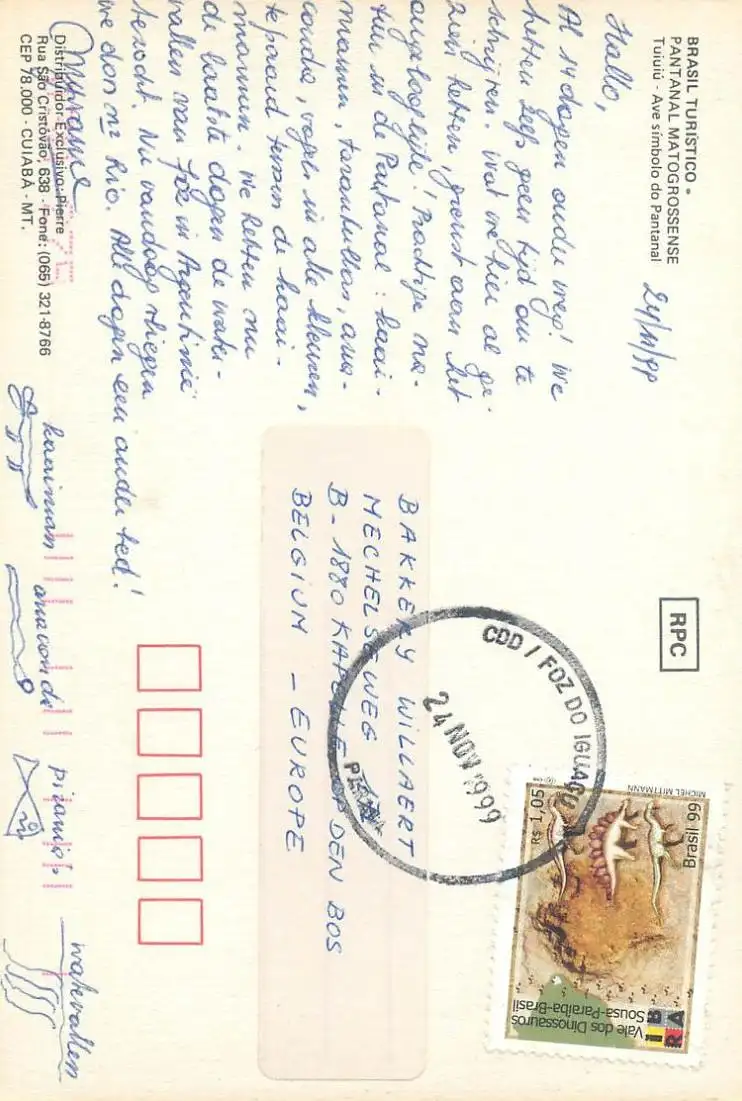 BRASIL TURÍSTICO •
PANTANAL MATOGROSSENSE
Tuiuiú - Ave símbolo do Pantanal
24/11/99
Hallo,
Al 14 dagen onderweg! We
hebben zelf geen tijd om te
schrijven. Wat we hier al ge-
zien hebben, grenst aan het
ongelooflijke! Prachtige na-
tuur in de Pantanal : kaai-
mannen, tarantullas, ana-
conda, vogels in alle kleuren,
te paard tussen de kaai-
mannen. We hebben nu
de laatste dagen de water-
vallen van in Argentinië
bezocht. Nu vandaag vliegen
we door nr Rio. Alle dagen een ander bed!
Distribuidor Exclusivo: Pierre
Rua São Cristóvão, 638 - Fone: (065) 321-8766
CEP 78.000 - CUIABÁ - MT.
kaaiman
anaconda
piranha's
watervallen
RPC
BAKKERY WILLAERT
MECHELSEWEG
B - 1880 KAPELLE OP DEN BOS
BELGIUM - EUROPE
CDD / FOZ DO IGUAÇU
24 NOV 1999
MICHEL MITTMANN
Brasil 99
R$ 1,05
Vale dos Dinossauros
Sousa-Paraíba-Brasil